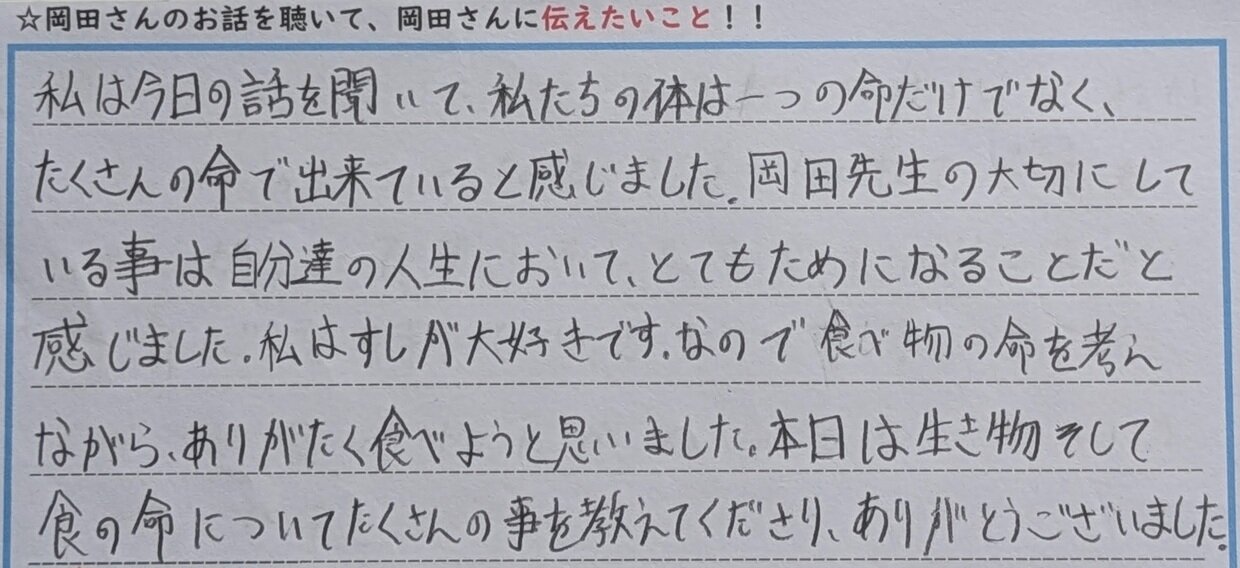 ☆岡田さんのお話を聴いて、岡田さんに伝えたいこと！！
私は今日の話を聞いて、私たちの体は一つの命だけでなく、
たくさんの命で出来ていると感じました。岡田先生の大切にして
いる事は自分達の人生において、とてもためになることだと
感じました。私はすしが大好きです。なので食べ物の命を考え
ながら、ありがたく食べようと思いました。本日は生き物そして
食の命についてたくさんの事を教えてくださり、ありがとうございました。